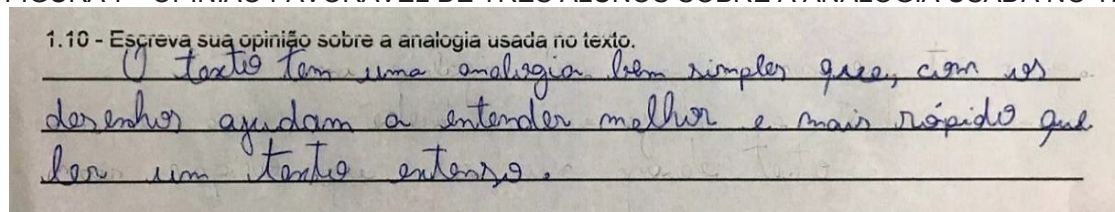 1.10 - Escreva sua opinião sobre a analogia usada no texto.
O texto tem uma analogia bem simples que, com os
desenhos ajudam a entender melhor e mais rápido que
ler um texto extenso.